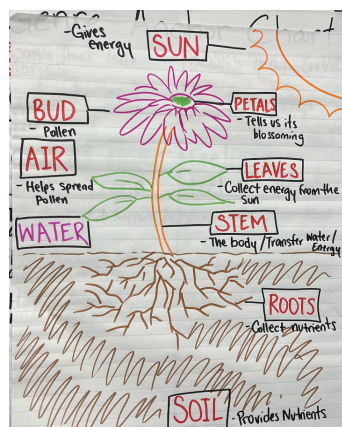 - Gives
energy
SUN
BUD
- Pollen
PETALS
- Tells us its
blossoming
AIR
- Helps spread
Pollen
LEAVES
- Collect energy from the
sun
WATER
STEM
- The body / Transfer water/
Energy
ROOTS
- Collect nutrients
SOIL
- Provides Nutrients